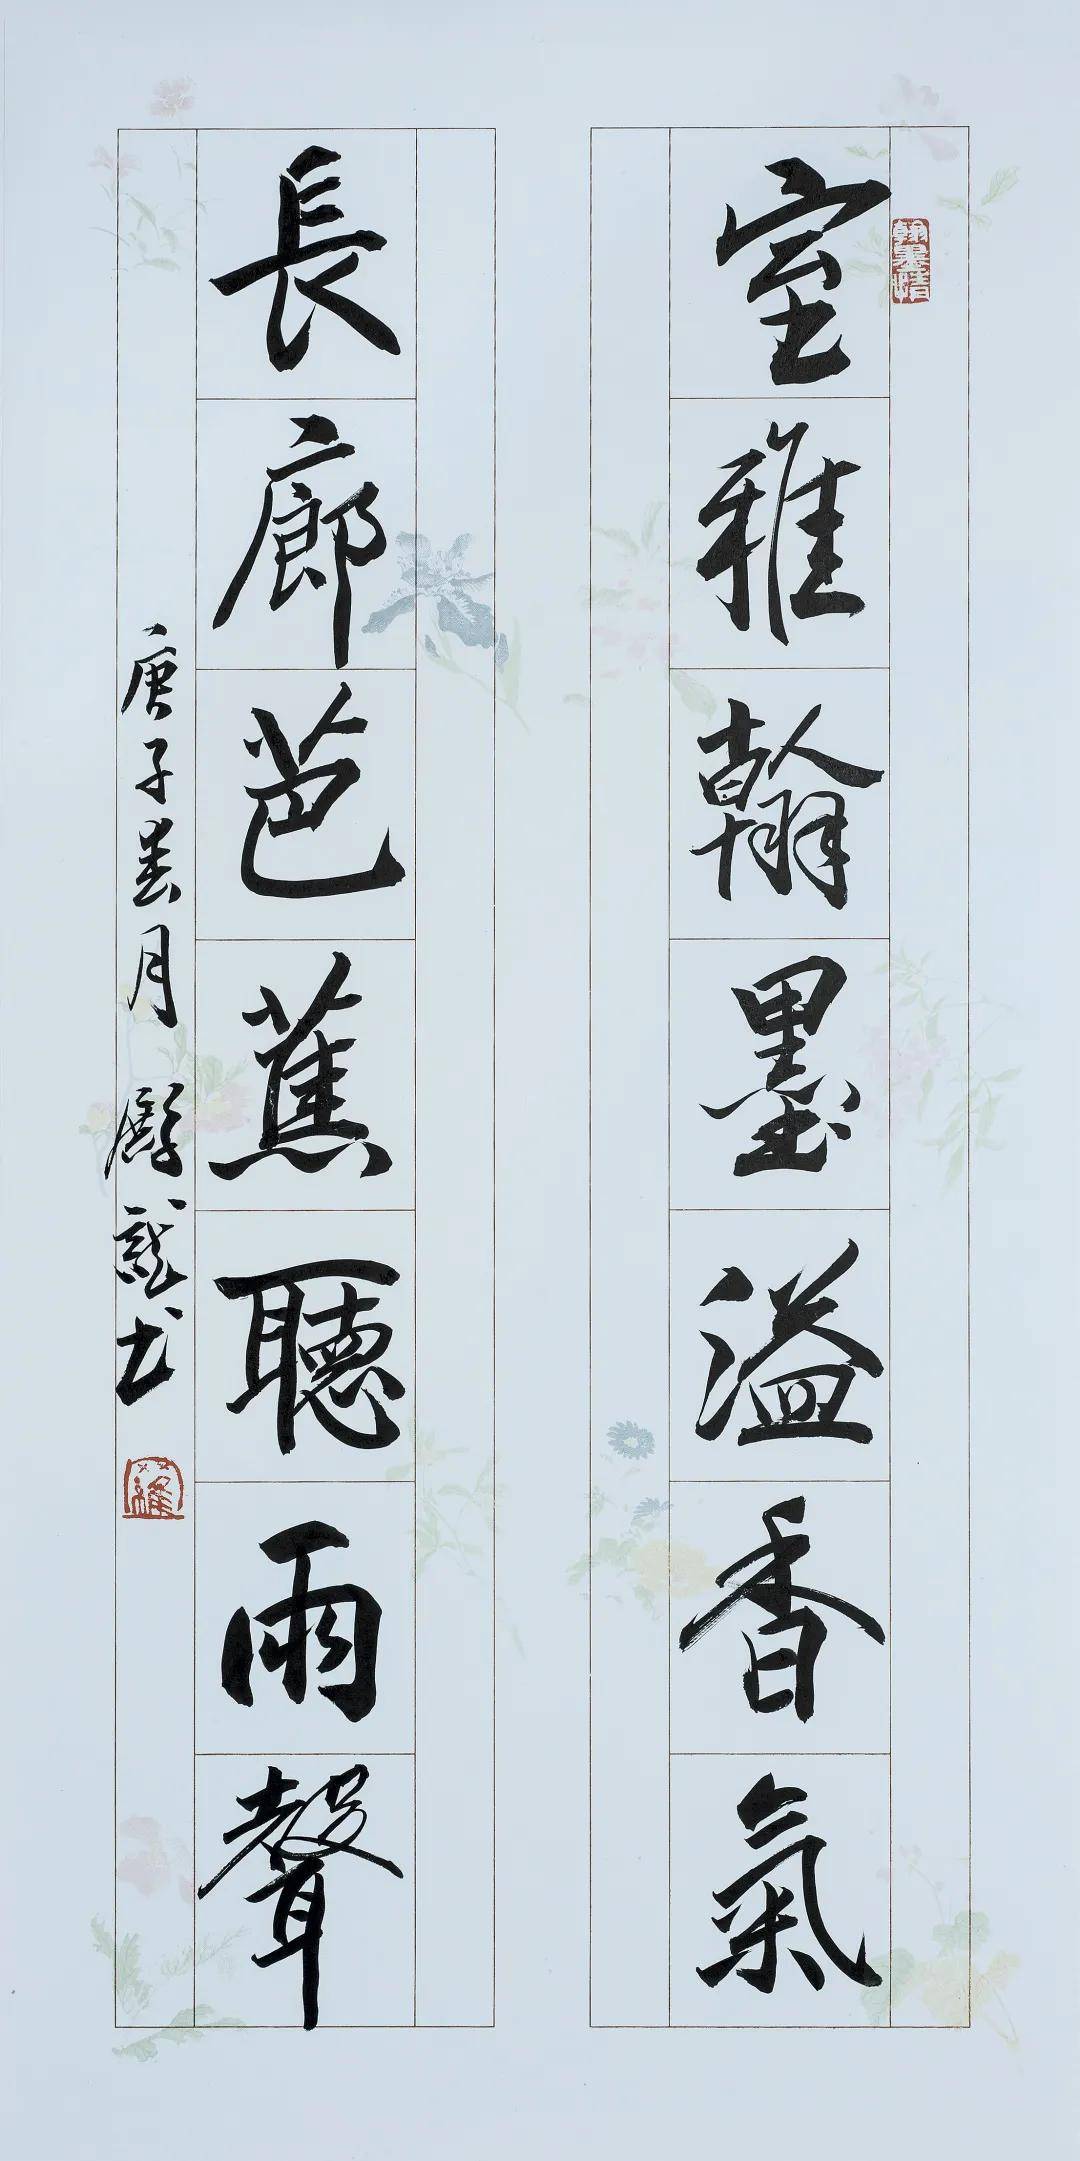 室雅翰墨溢香氣
長廊芭蕉聽雨聲
庚子春月
翰墨情